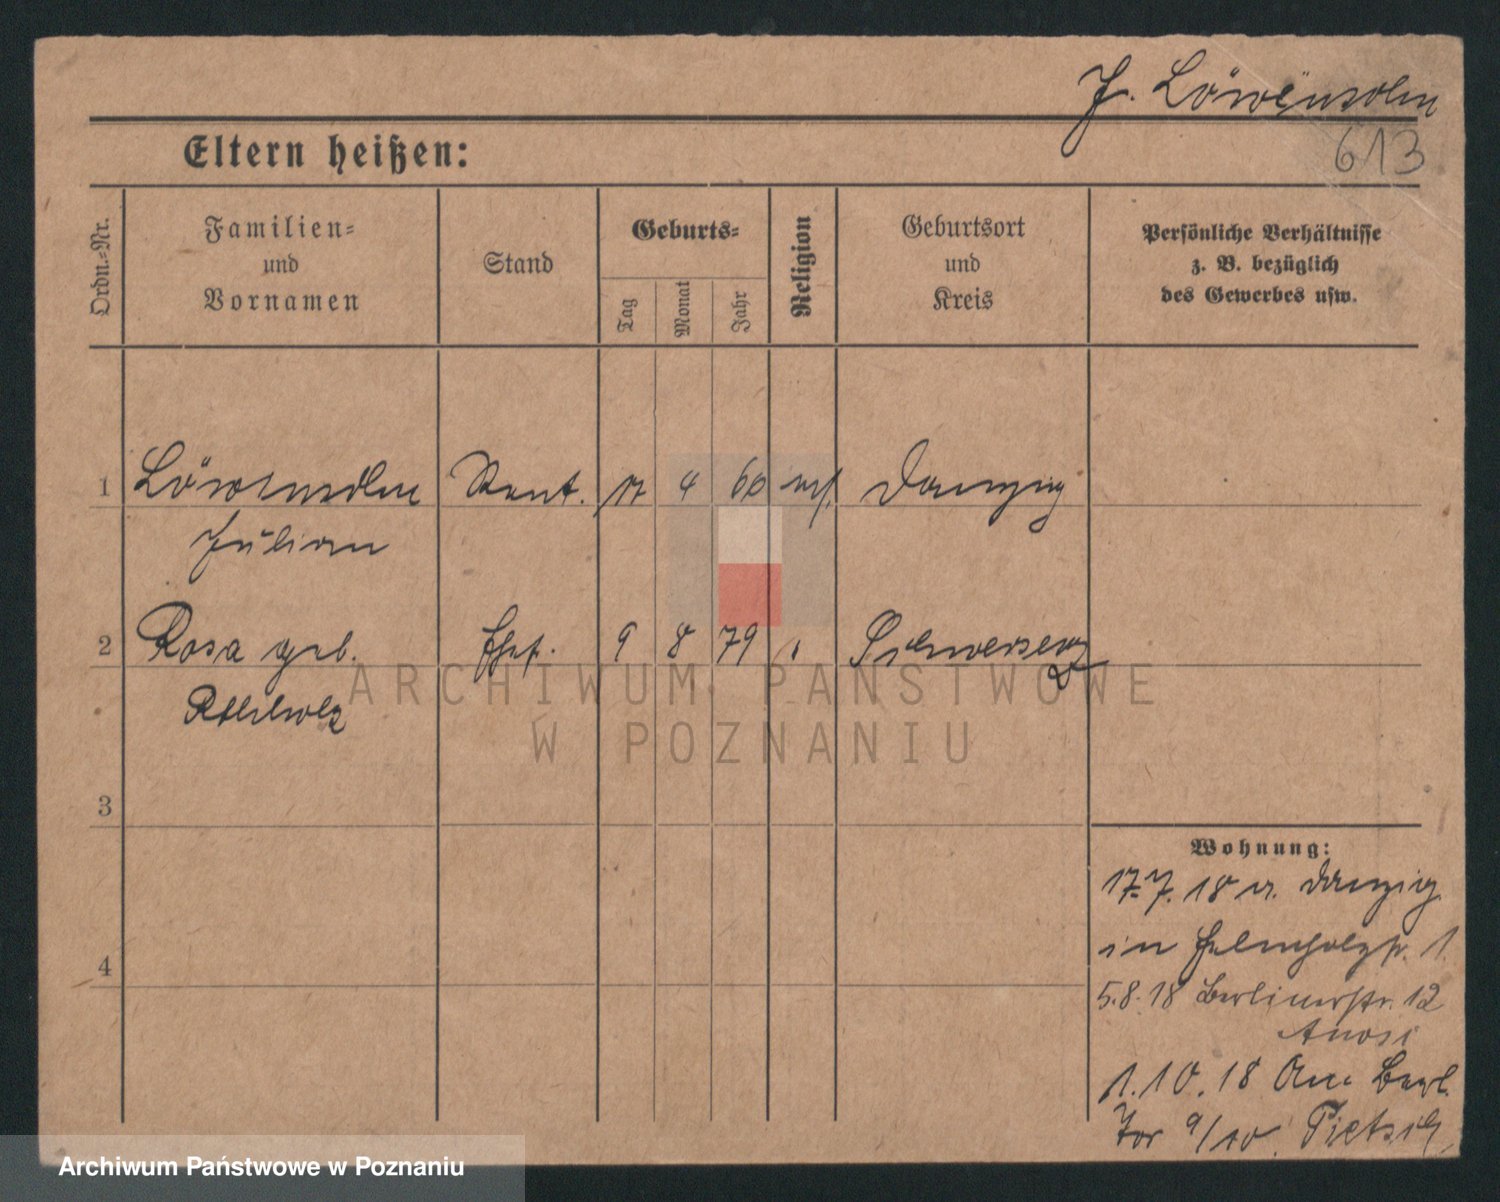 J. Löwensohn
613
Eltern heißen:
Ordn.-Nr.
Familien-
und
Vornamen
Stand
Geburts-
Tag
Monat
Jahr
Religion
Geburtsort
und
Kreis
Persönliche Verhältnisse
z. B. bezüglich
des Gewerbes usw.
1 Löwensohn Rent. 17 4 60 Danzig
Julian
2 Rosa geb. Ehefr. 9 8 79 " Schwersenz
3
4
Wohnung:
17.7.18 v. Danzig
in Helmholzstr. 1.
5.8.18 Berlinerstr. 12
1.10.18 Am Berl.
Tor 9/10 Pietsch
ARCHIWUM PAŃSTWOWE
W POZNANIU
Archiwum Państwowe w Poznaniu